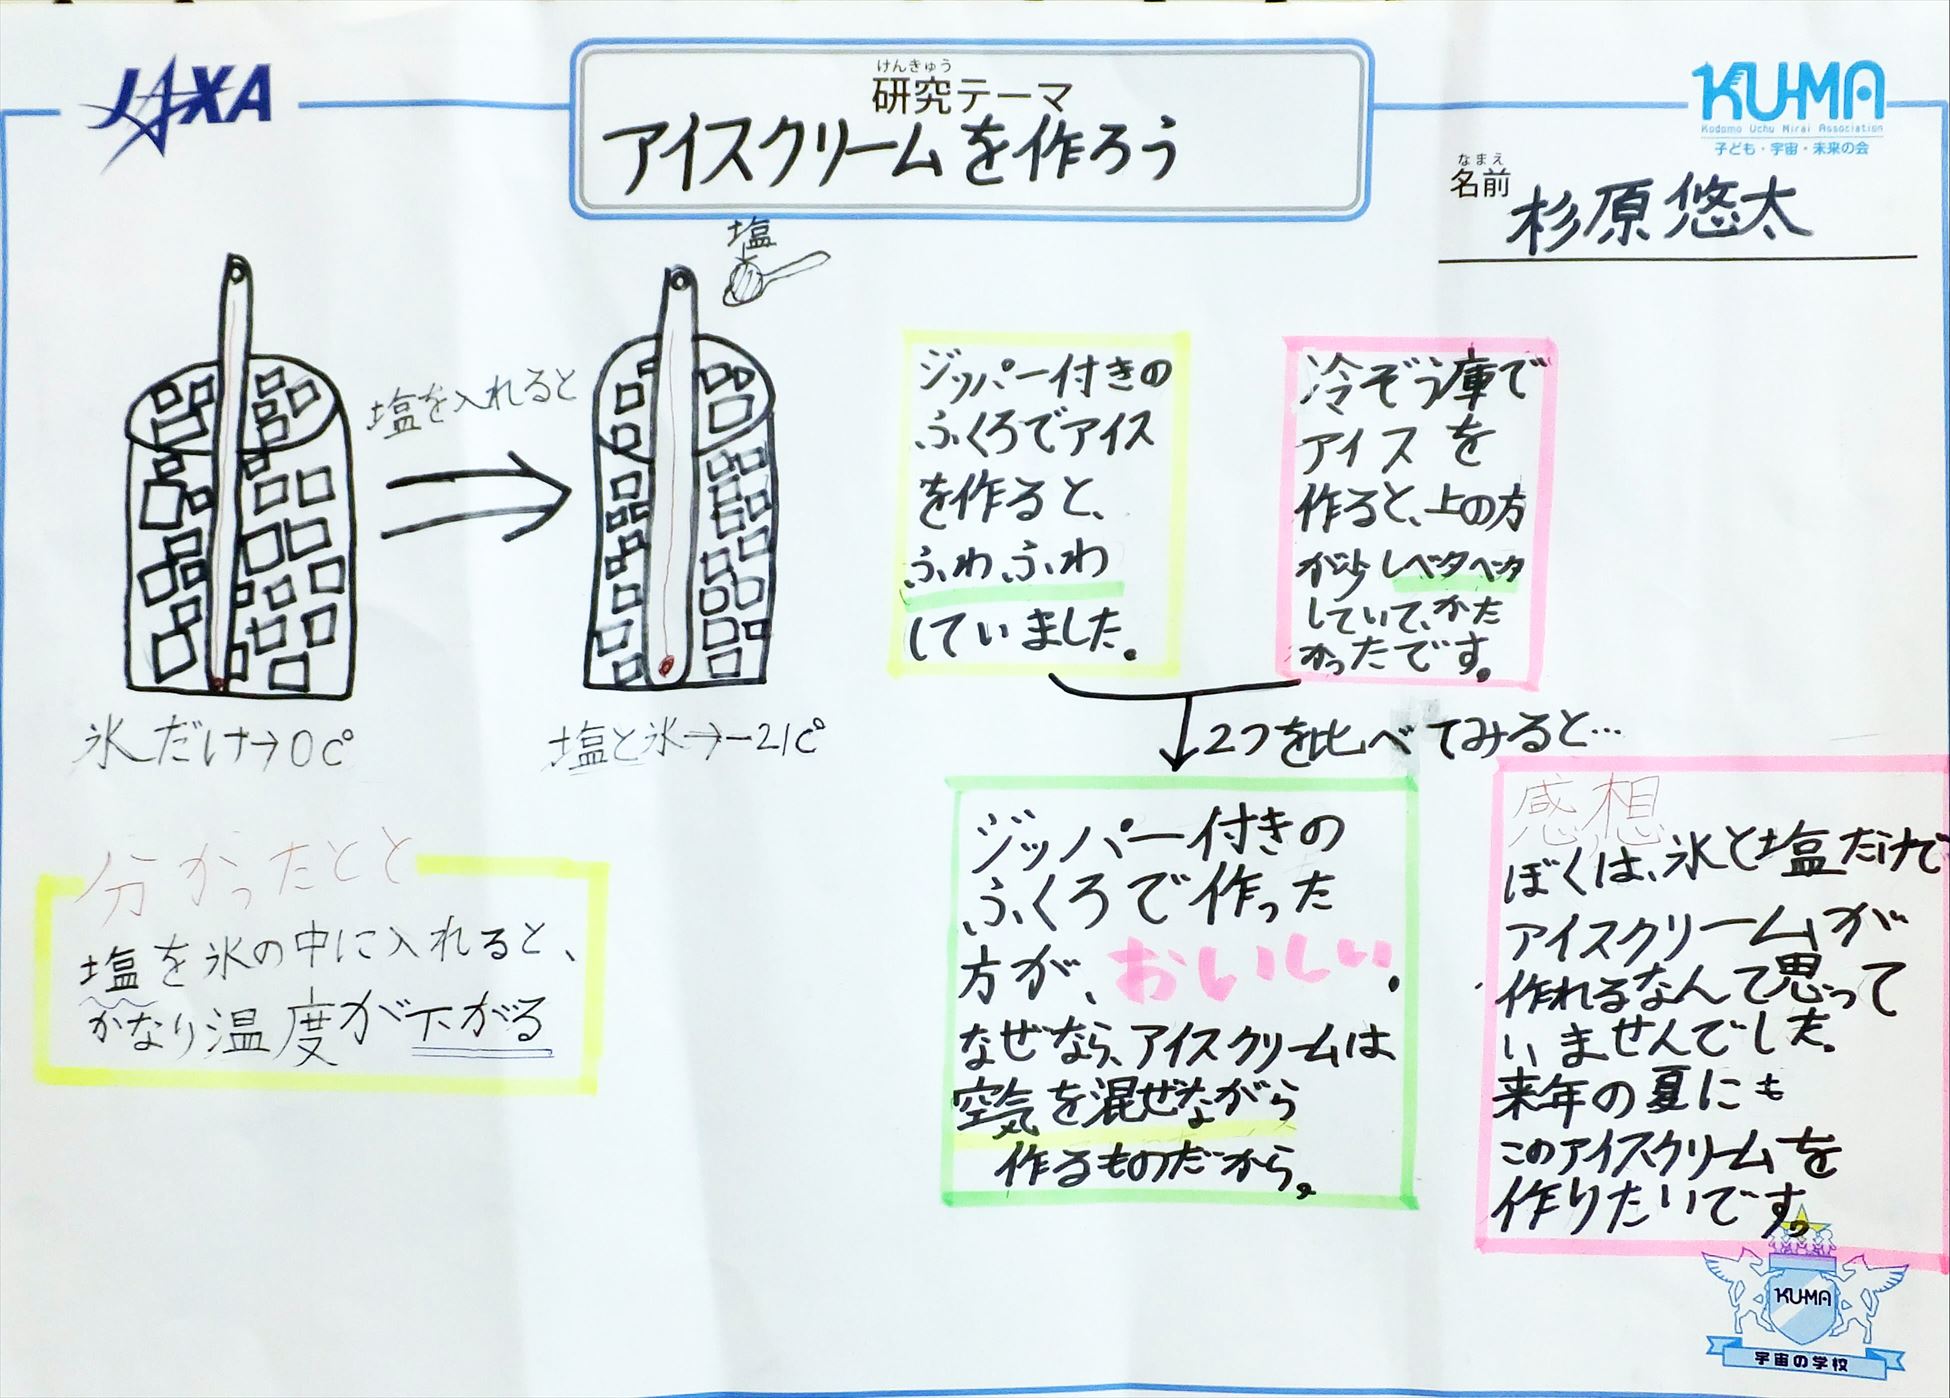 JAXA
けんきゅう
研究テーマ
アイスクリームを作ろう
KU-MA
Kodomo Uchu Mirai Association
子ども・宇宙・未来の会
なまえ
名前
杉原悠太
塩
塩を入れると
氷だけ→0c°
塩と氷→-21c°
分かったとと
塩を氷の中に入れると、
かなり温度が下がる
ジッパー付きの
ふくろでアイス
を作ると、
ふわふわ
していました。
冷ぞう庫で
アイスを
作ると、上の方
が少しベタベタ
していて、かた
かったです。
2つを比べてみると…
ジッパー付きの
ふくろで作った
方が、おいしい。
なぜなら、アイスクリームは
空気を混ぜながら
作るものだから。
感想
ぼくは、氷と塩だけで
アイスクリームが
作れるなんて思って
いませんでした。
来年の夏にも
このアイスクリームを
作りたいです。
KU-MA
宇宙の学校